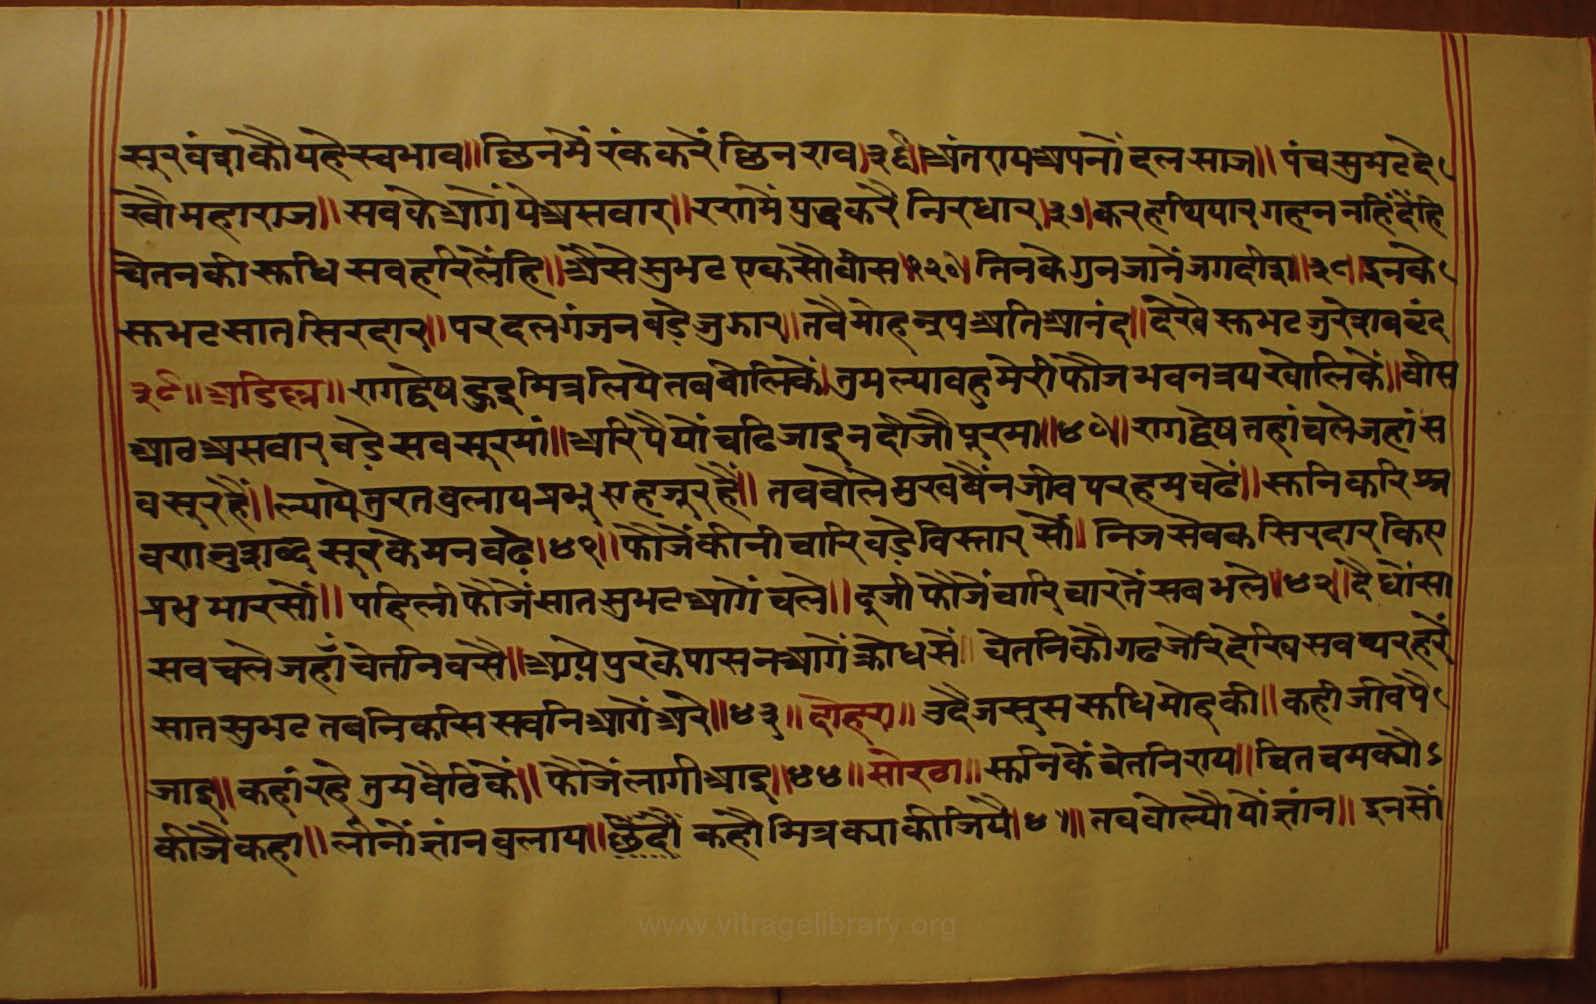 सुरवंशकौ यहै स्वभाव॥ छिनमें रंक करें छिन राव।३६॥ अंतराय अपनों दल साज॥ पंच सुभट दे
खौ महाराज॥ सवके आगें ये असवार॥ रणमें युद्ध करै निरधार।३७। कर हथियार गहन नहिं देंहि
चेतनकी सुधि सव हरि लेंहि॥ अैसे सुभट एक सौ वीस।१२०। तिनके गुन जानें जगदीश॥३८॥ इनके
सुभट सात सिरदार॥ परदल गंजन वडे जुझार॥ तवै मोह नृप अति आनंद॥ देखे सुभट जुरे शव वृंद
३९॥ अडिल्ल॥ रागद्वेष दुइ मित्र लिये तव वोलिकें। तुम ल्यावहु मेरी फौज भवनत्रय खोलिकें॥ वीस
आठ असवार वडे सव सूरमां॥ अरिपै यों चढि जाइ नदी जौ पूरमा॥४०॥ रागद्वेष तहां चले जहां स
व सूर हैं॥ ल्याये तुरत वुलाय प्रभू ए हजूर हैं॥ तव वोले मुख वैंन जीव पर हम चढें॥ सुनि करि श्र
वण शुशब्द सूरके मन वढे।४१॥ फौजें कीनी चारि वडे विस्तार सों। निज सेवक सिरदार किए
प्रभु मारसों॥ पहिली फौजें सात सुभट आगें चले॥ दूजी फौजें चारि चारतें सव भले॥४२॥ दै धोंसा
सव चले जहाँ चेतनि वसै॥ आये पुरके पास न आगें को धसें॥ चेतनिकौ गढ जोरि देखि सव थरहरें
सात सुभट तव निकसि सवनि आगें अरे॥४३॥ दोहरा॥ उदै जसुस सुधि मोहकी॥ कही जीवपै
जाइ॥ कहां रहे तुम वैठिकें॥ फौजें लागी आइ॥४४॥ सोरठा॥ सुनिकें चेतनिराय॥ चित चमक्यौ ऽ
कीजै कहा॥ लीनों ज्ञांन वुलाय॥ कहौ मित्र क्या कीजियै। तव वोल्यौ यों ज्ञांन॥ इनसों